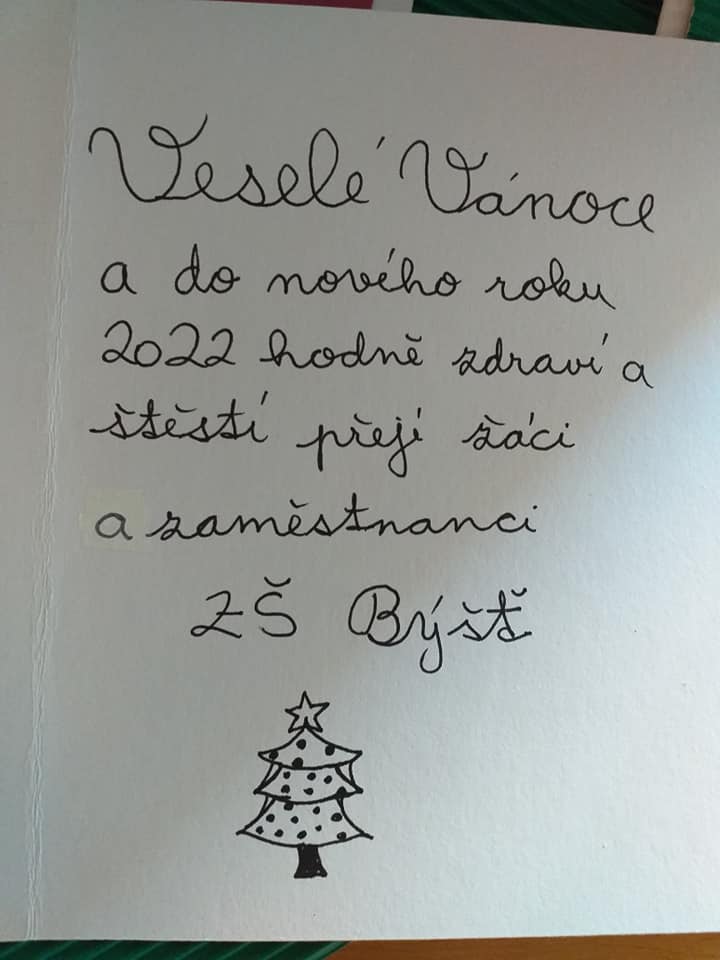 Veselé Vánoce
a do nového roku
2022 hodně zdraví a
štěstí přejí žáci
a zaměstnanci
ZŠ Býšť